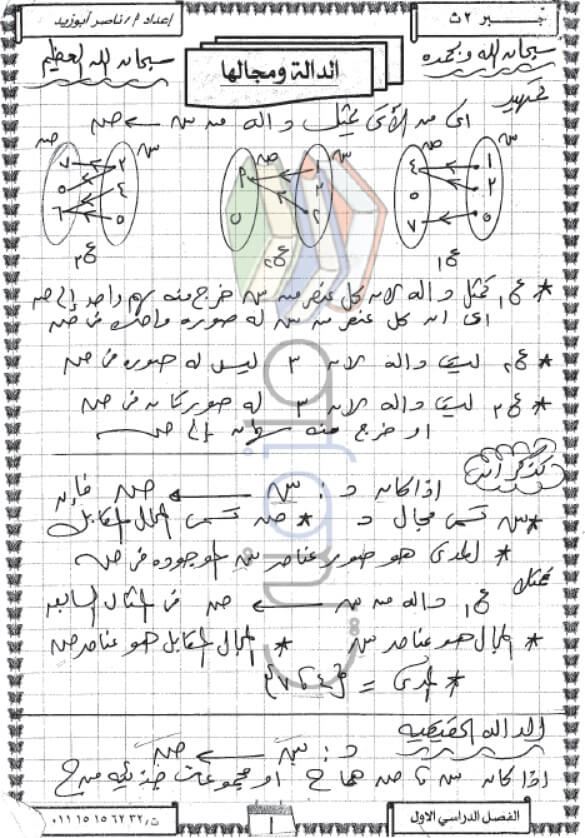 جبر ٢ث
إعداد أ/ناصر أبوزيد
سبحان الله وبحمده
سبحان الله العظيم
الدالة ومجالها
تمهيد
أى من الآتى يمثل دالة من س ← ص
س ص
١ ٢ ٥
٤ ٥ ٧
ع١
س ص
٣ ٢
ع٢
س ص
٣ ٤ ٥
٧ ٥ ٦
ع٣
* ع١ تمثل دالة لأن كل عنصر من س خرج منه سهم واحد إلى ص
أى أن كل عنصر من س له صورة واحدة فى ص
* ع٢ ليست دالة لأن ٣ ليس له صورة فى ص
* ع٣ ليست دالة لأن ٣ له صورتان فى ص
أو خرج منه سهمان إلى ص
تذكر أن
إذا كان د : س ← ص فإن
* س تسمى مجال د * ص تسمى المجال المقابل
* المدى هو صور عناصر س الموجودة فى ص
فمثل
ع١ دالة من س ← ص فى المثال السابق
* المجال هو عناصر س * المجال المقابل هو عناصر ص
* المدى = {٧،٤}
الدالة الحقيقية
د : س ← ص
إذا كان س ، ص هما ح أو مجموعات جزئية من ح
الفصل الدراسى الأول
١
ت/ ٠١١١٥١٥٦٢٣٢